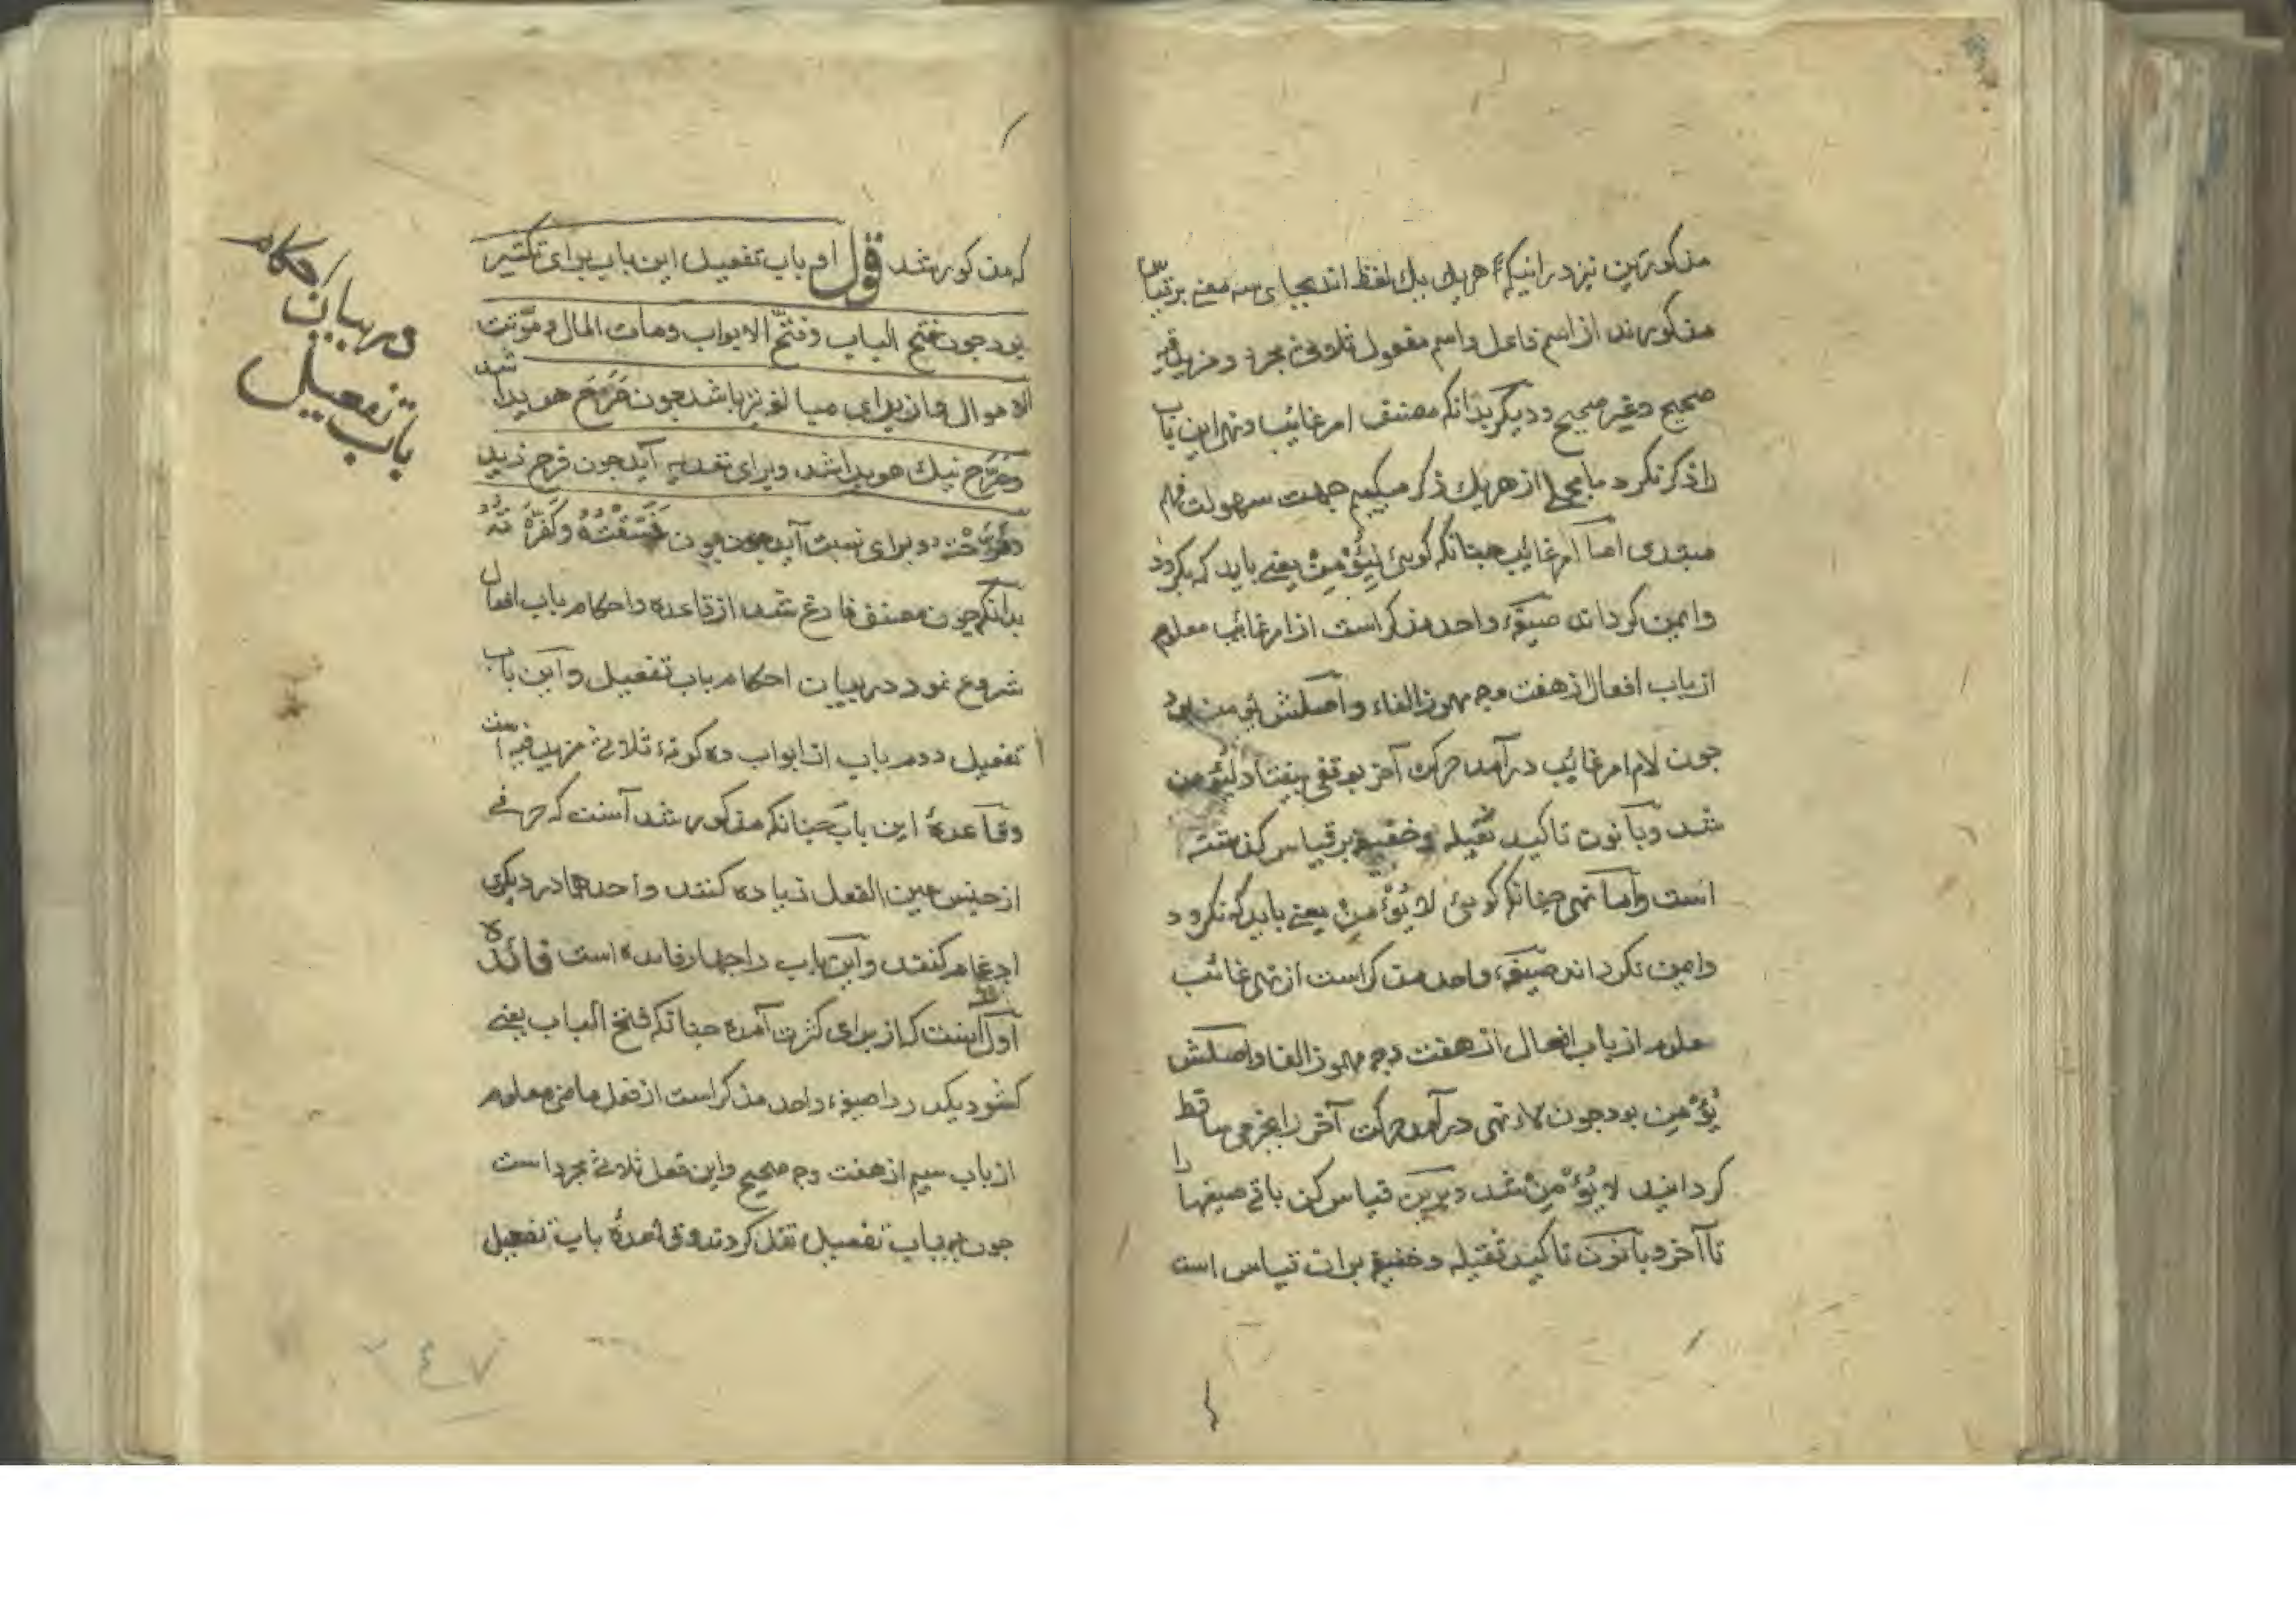 مذکورین نیز در اینکه هر یك بیك لفظ اند بجای سه معنے بر قیاس
مذکورند از اسم فاعل واسم مفعول ثلاثی مجرد و مزید فیه
صحیح وغیر صحیح ودیکر بدانکه مصنف امر غائب ونهی این باب
را ذکر نکرد ما مجملا از هر یك ذکر میکنیم جهت سهولت فهم
مبتدی اما امر غائب چنانکه کوئی لیُؤْمِنْ یعنے باید که بکرود
وایمن کرداند صیغهٔ واحد مذکر است از امر غائب معلوم
از باب افعال از هفت وجه مهموز الفاء واصلش یؤمن بود
جون لام امر غائب در آمد حرکت آخر بوقفی بیفتاد لیؤمن
شد وبا نون تاکید ثقیله وخفیفه بر قیاس کذشته
است واما نهی چنانکه کوئی لا یُؤْمِنْ یعنے باید که نکرود
وایمن نکرداند صیغهٔ واحد مذکر است از نهی غائب
معلوم از باب افعال از هفت وجه مهموز الفا واصلش
یُؤْمِن بود جون لاء نهی در آمد حرکت آخر را بجزمی ساقط
کردانید لا یُؤْمِنْ شد وبرین قیاس کن باقے صیغها را
تا آخر وبا نون تاکید ثقیله وخفیفه بران قیاس است
که مذکور شد قول او باب تفعیل این باب برای تکثیر
بود جون فتح الباب وفتّح الابواب ومات المال وموّتت
الاموال واز برای مبالغه نیز باشد جون صَرَحَ هویدا شد
وصَرَّح نیك هویدا شد وبرای تعدیه آید جون فرح زید
وفَرَّحْتُه وبرای نسبت آید جون فَسَّقْتُهُ وکَفَّرْتُهُ
بدانکه جون مصنف فارغ شد از قاعده واحکام باب افعال
شروع نمود در بیان احکام باب تفعیل واین باب
تفعیل دوم باب از ابواب ده کونهٔ ثلاثے مزید فیه است
وقاعدهٔ این باب چنانکه مذکور شد آنست که حرفے
از جنس عین الفعل زیاده کنند واحدهما در دیکری
ادغام کنند واین باب را جهار فائده است فائدهٔ
اول اینست که از برای کثرت آمده چنانکه فتح الباب یعنے
کشود یکدر را صیغهٔ واحد مذکر است از فعل ماضی معلوم
از باب سیم از هفت وجه صحیح واین فعل ثلاثے مجرد است
جون بباب تفعیل نقل کردند وقاعدهٔ باب تفعیل
در بیان احکام
باب تفعیل
٢٤٧